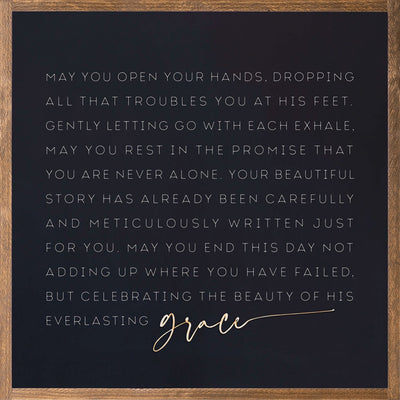 MAY YOU OPEN YOUR HANDS, DROPPING
ALL THAT TROUBLES YOU AT HIS FEET.
GENTLY LETTING GO WITH EACH EXHALE,
MAY YOU REST IN THE PROMISE THAT
YOU ARE NEVER ALONE. YOUR BEAUTIFUL
STORY HAS ALREADY BEEN CAREFULLY
AND METICULOUSLY WRITTEN JUST
FOR YOU. MAY YOU END THIS DAY NOT
ADDING UP WHERE YOU HAVE FAILED,
BUT CELEBRATING THE BEAUTY OF HIS
EVERLASTING grace